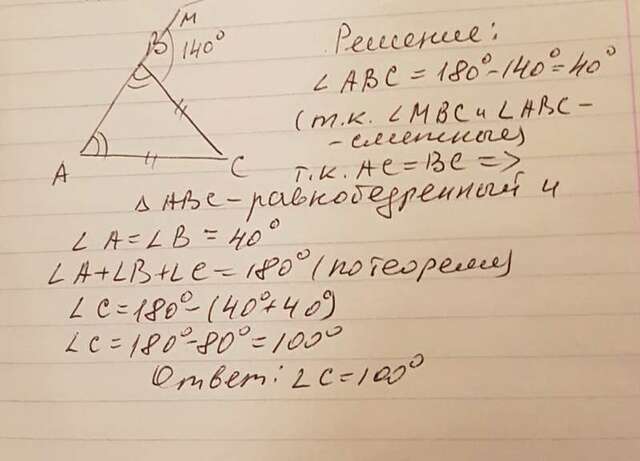 M
B
140°
A
C
Решение:
∠ABC = 180° - 140° = 40°
(т.к. ∠MBC и ∠ABC -
- смежные)
т.к. AC = BC =>
△ABC - равнобедренный и
∠A = ∠B = 40°
∠A + ∠B + ∠C = 180° (по теореме)
∠C = 180° - (40° + 40°)
∠C = 180° - 80° = 100°
Ответ: ∠C = 100°